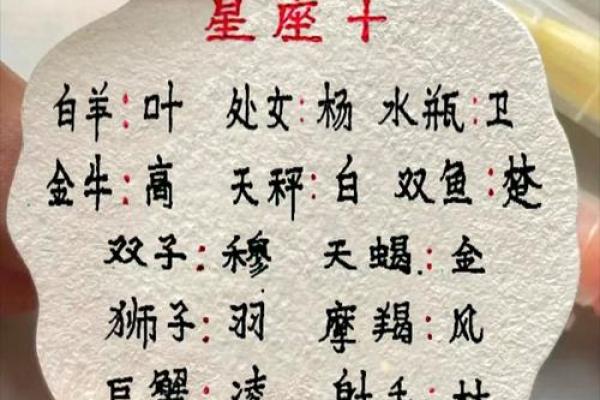 星座十
白羊:叶 处女:杨 水瓶:卫
金牛:高 天秤:白 双鱼:楚
双子:穆 天蝎:金
狮子:羽 摩羯:风
巨蟹:凌 射手: